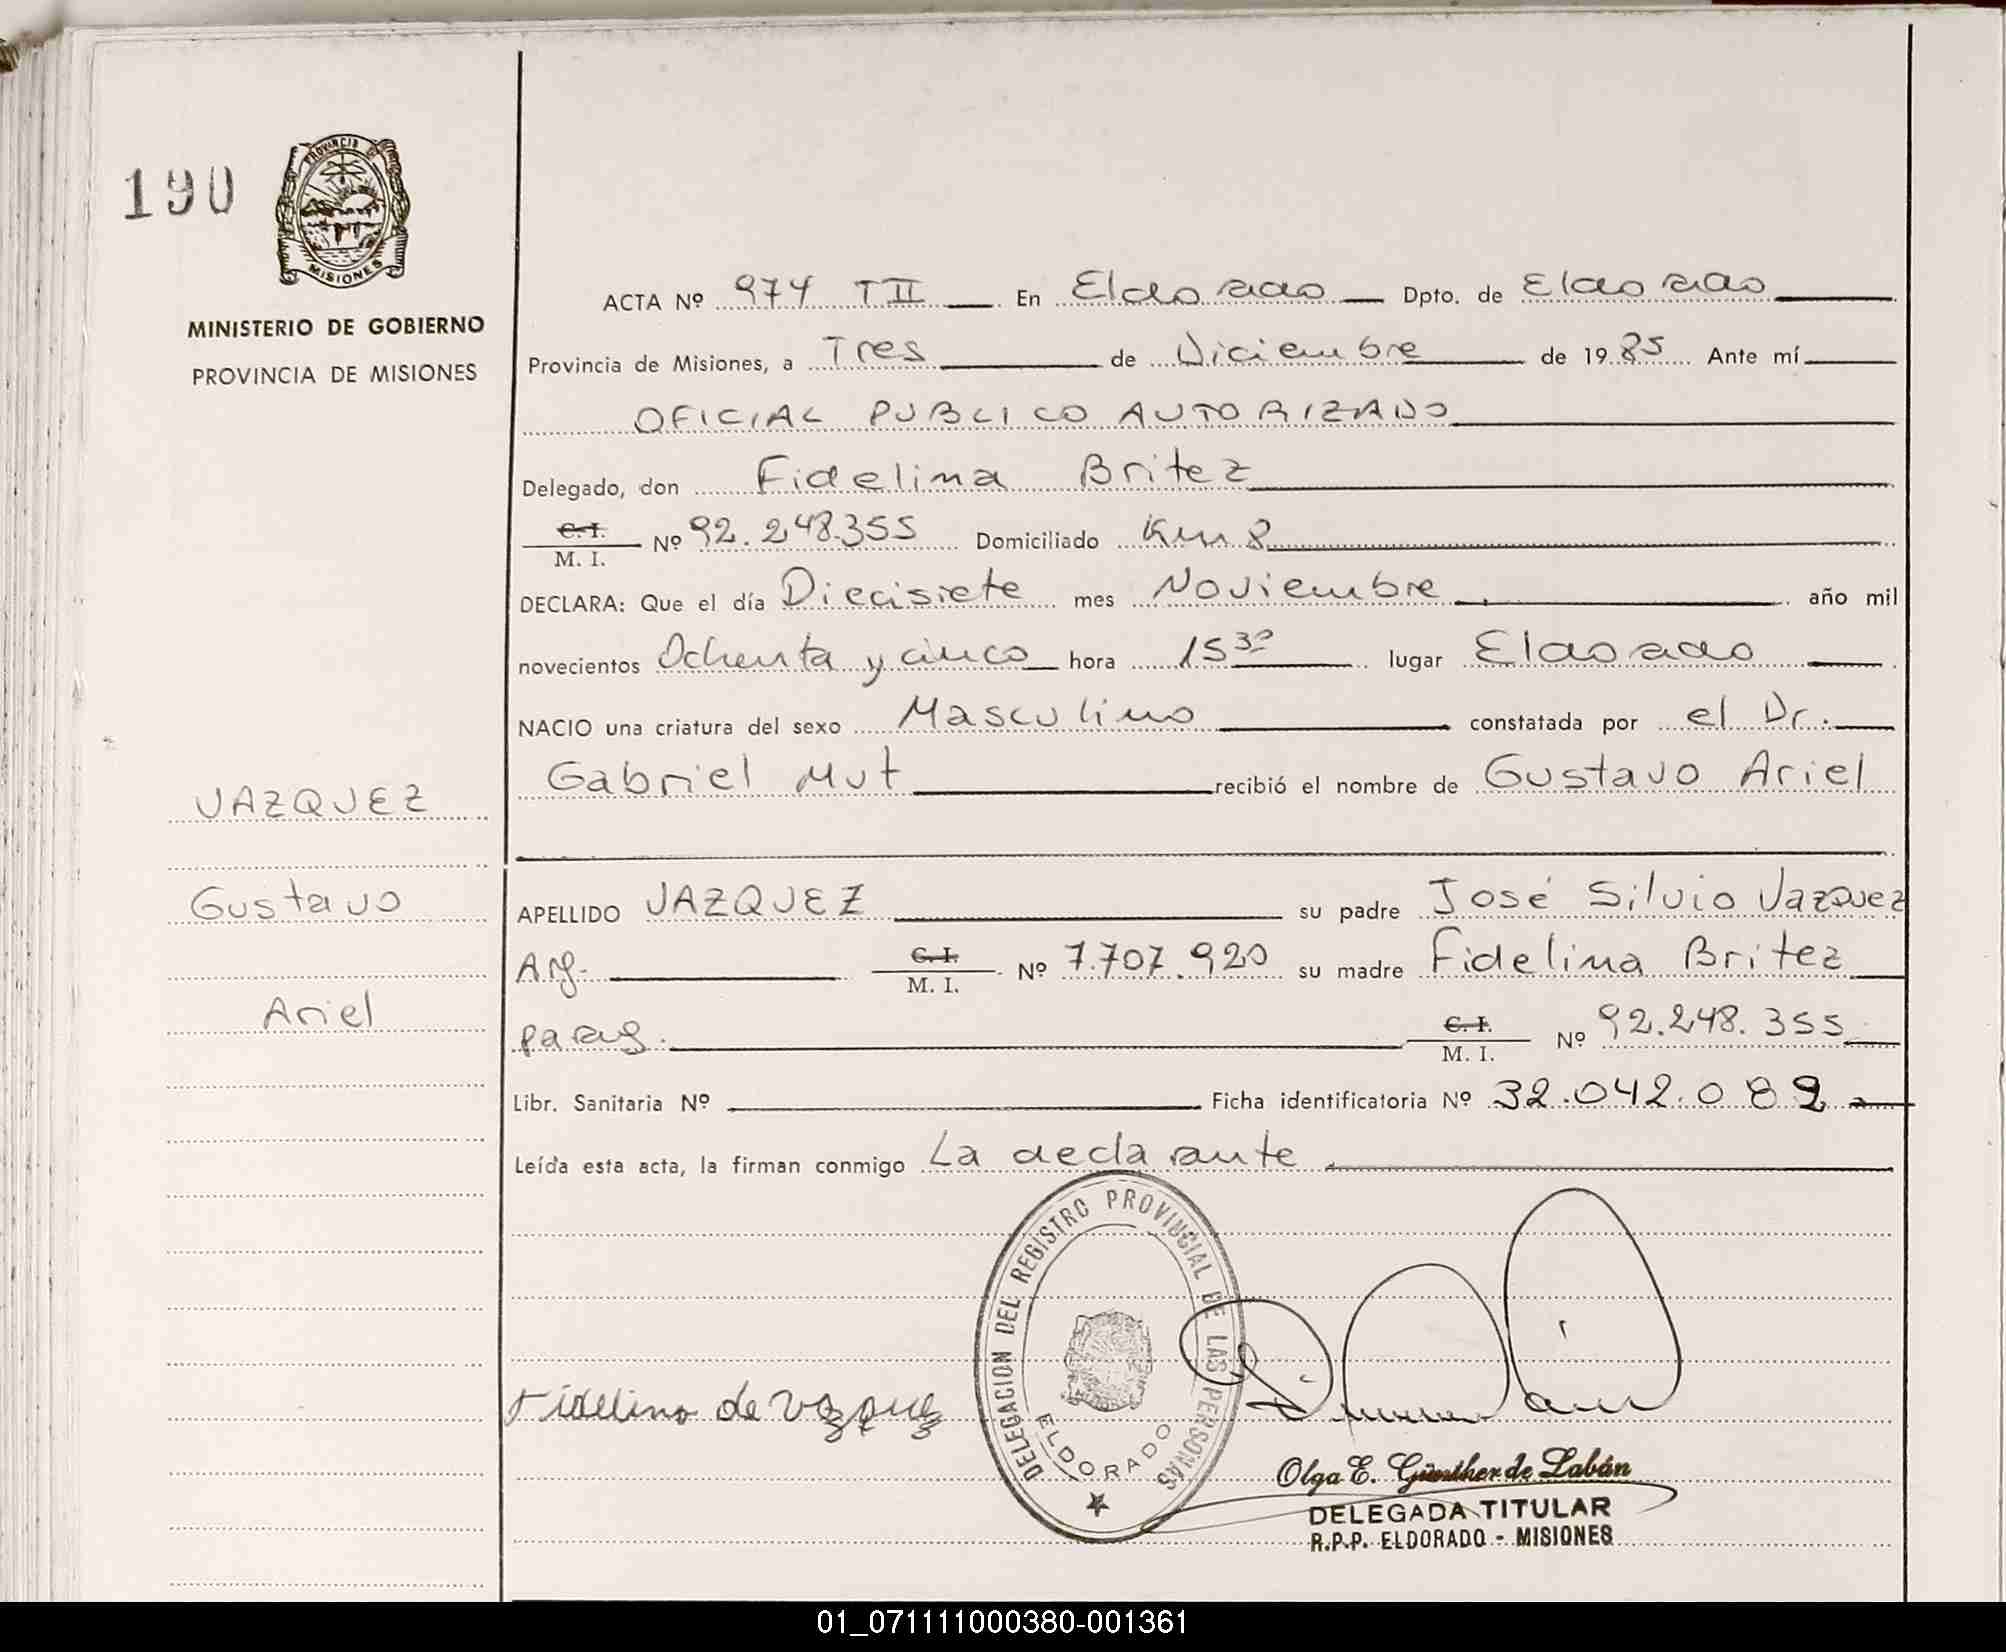 190
PROVINCIA DE
MISIONES
MINISTERIO DE GOBIERNO
PROVINCIA DE MISIONES
VAZQUEZ
Gustavo
Ariel
ACTA Nº 974 T II En Eldorado Dpto. de Eldorado
Provincia de Misiones, a Tres de Diciembre de 1985 Ante mí
OFICIAL PUBLICO AUTORIZADO
Delegado, don Fidelina Britez
C.I. M. I. Nº 92.248.355 Domiciliado Km 8
DECLARA: Que el día Diecisiete mes Noviembre año mil
novecientos Ochenta y cinco hora 15 30 lugar Eldorado
NACIO una criatura del sexo Masculino constatada por el Dr.
Gabriel Mut recibió el nombre de Gustavo Ariel
APELLIDO VAZQUEZ su padre José Silvio Vazquez
Arg. C.I. M. I. Nº 7.707.920 su madre Fidelina Britez
parag. C.I. M. I. Nº 92.248.355
Libr. Sanitaria Nº Ficha identificatoria Nº 32.042.089
Leída esta acta, la firman conmigo La declarante
DELEGACION DEL REGISTRO PROVINCIAL DE LAS PERSONAS
ELDORADO
Fidelina de Vazquez
Olga E. Günther de Labán
DELEGADA TITULAR
R.P.P. ELDORADO - MISIONES
01_071111000380-001361